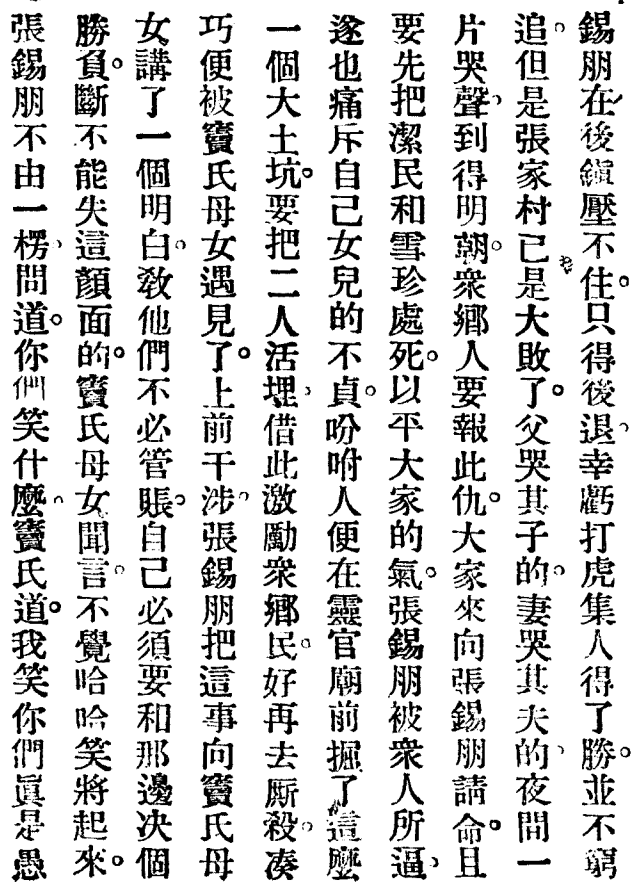 錫朋在後鎭壓不住。只得後退、幸虧打虎集人得了勝。並不窮
追。但是張家村已是大敗了。父哭其子的。妻哭其夫的、夜間一
片哭聲、到得明朝。衆鄉人要報此仇。大家來向張錫朋請命。且
要先把潔民和雪珍處死。以平大家的氣。張錫朋被衆人所逼、
遂也痛斥自己女兒的不貞。吩咐人便在靈官廟前掘了這麼
一個大土坑。要把二人活埋、借此激勵衆鄉民。好再去厮殺。凑
巧便被竇氏母女遇見了。上前干涉。張錫朋把這事向竇氏母
女講了一個明白。敎他們不必管賬。自己必須要和那邊决個
勝負。斷不能失這顏面的。竇氏母女聞言。不覺哈哈笑將起來。
張錫朋不由一楞、問道。你們笑什麼。竇氏道。我笑你們眞是愚